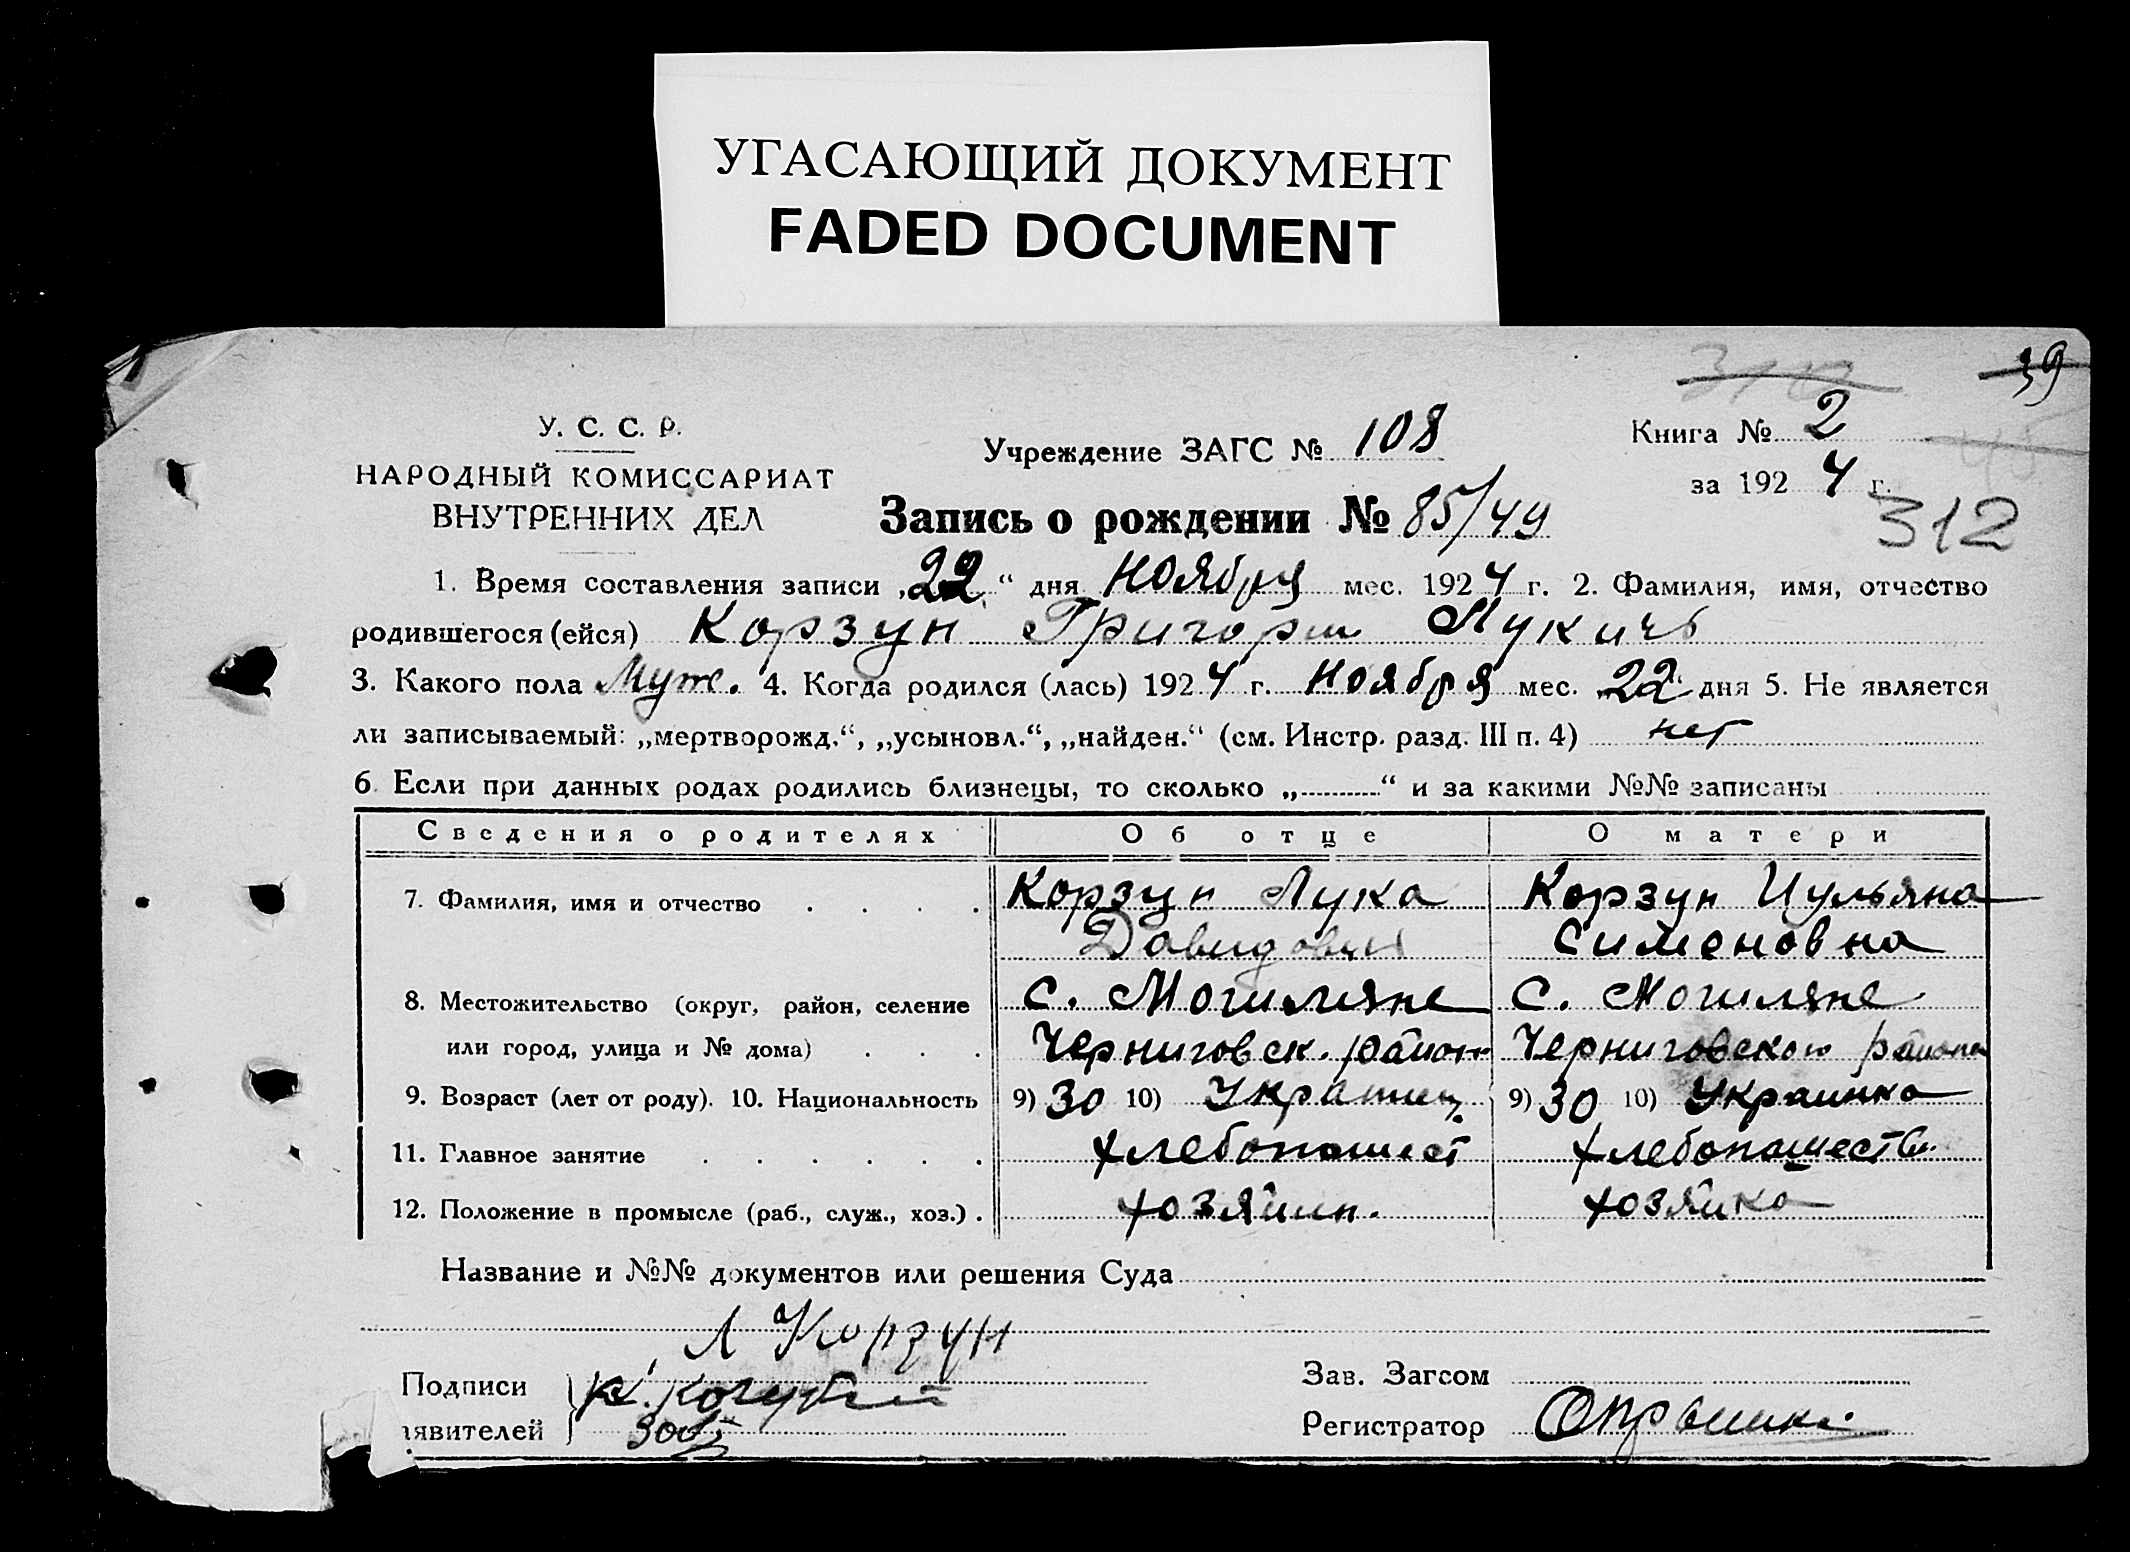 УГАСАЮЩИЙ ДОКУМЕНТ
FADED DOCUMENT
39
У. С. С. Р.
НАРОДНЫЙ КОМИССАРИАТ
ВНУТРЕННИХ ДЕЛ
Учреждение ЗАГС № 108
Книга № 2
за 1924 г.
312
Запись о рождении № 85/49
1. Время составления записи „22“ дня Ноября мес. 1924 г. 2. Фамилия, имя, отчество
родившегося (ейся) Корзун Григори Лукичь
3. Какого пола Муж. 4. Когда родился (лась) 1924 г. Ноября мес. „22“ дня 5. Не является
ли записываемый: „мертворожд.“, „усыновл.“, „найден.“ (см. Инстр. разд. III п. 4) нет
6. Если при данных родах родились близнецы, то сколько „ “ и за какими №№ записаны
Сведения о родителях Об отце О матери
7. Фамилия, имя и отчество . . . . Корзун Лука Корзун Иульяна
Давидович Симоновна
8. Местожительство (округ, район, селение с. Могиляне с. Могиляне
или город, улица и № дома) . . . Черниговск. район Черниговского района
9. Возраст (лет от роду). 10. Национальность 9) 30 10) Украинец 9) 30 10) Украинка
11. Главное занятие . . . . . . хлебопашест хлебопашеств
12. Положение в промысле (раб., служ., хоз.) . хозяин. хозяйка
Название и №№ документов или решения Суда
Л Корзун
Подписи К. Кочубей Зав. Загсом
явителей Регистратор